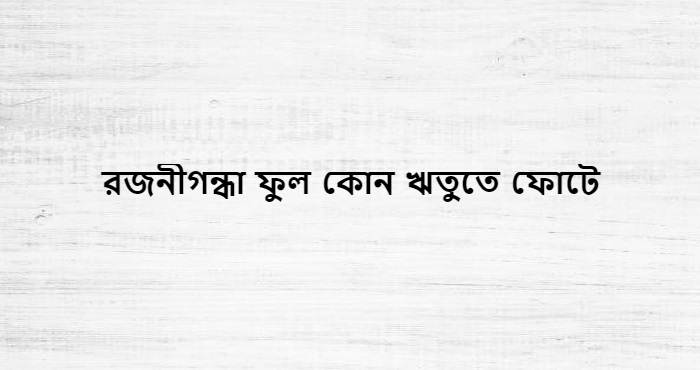 রজনীগন্ধা ফুল কোন ঋতুতে ফোটে